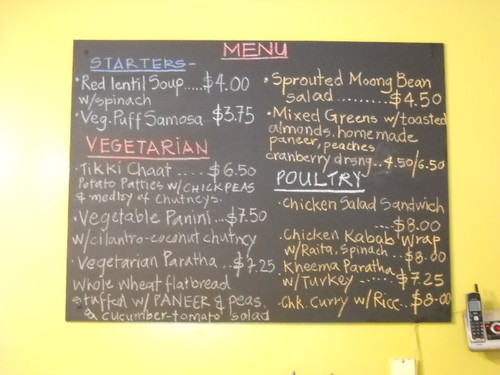 MENU
STARTERS-
• Red lentil Soup.....$4.00
w/spinach
• Veg. Puff Samosa $3.75
VEGETARIAN
• Tikki Chaat .... $6.50
Potato Patties w/CHICKPEAS
& medley of chutneys.
• Vegetable Panini...$7.50
w/cilantro-coconut chutney
• Vegetarian Paratha ..$7.25
whole wheat flatbread
stuffed w/ PANEER & peas.
& cucumber-tomato salad
• Sprouted Moong Bean
salad .........$4.50
• Mixed Greens w/toasted
almonds, homemade
paneer, peaches
cranberry drsng..4.50/6.50
POULTRY
• Chicken Salad Sandwich
...$8.00
• Chicken Kabab Wrap
w/Raita, Spinach...$8.00
• Kheema Paratha
w/Turkey ......$7.25
• Chk. Curry w/Rice..$8.00